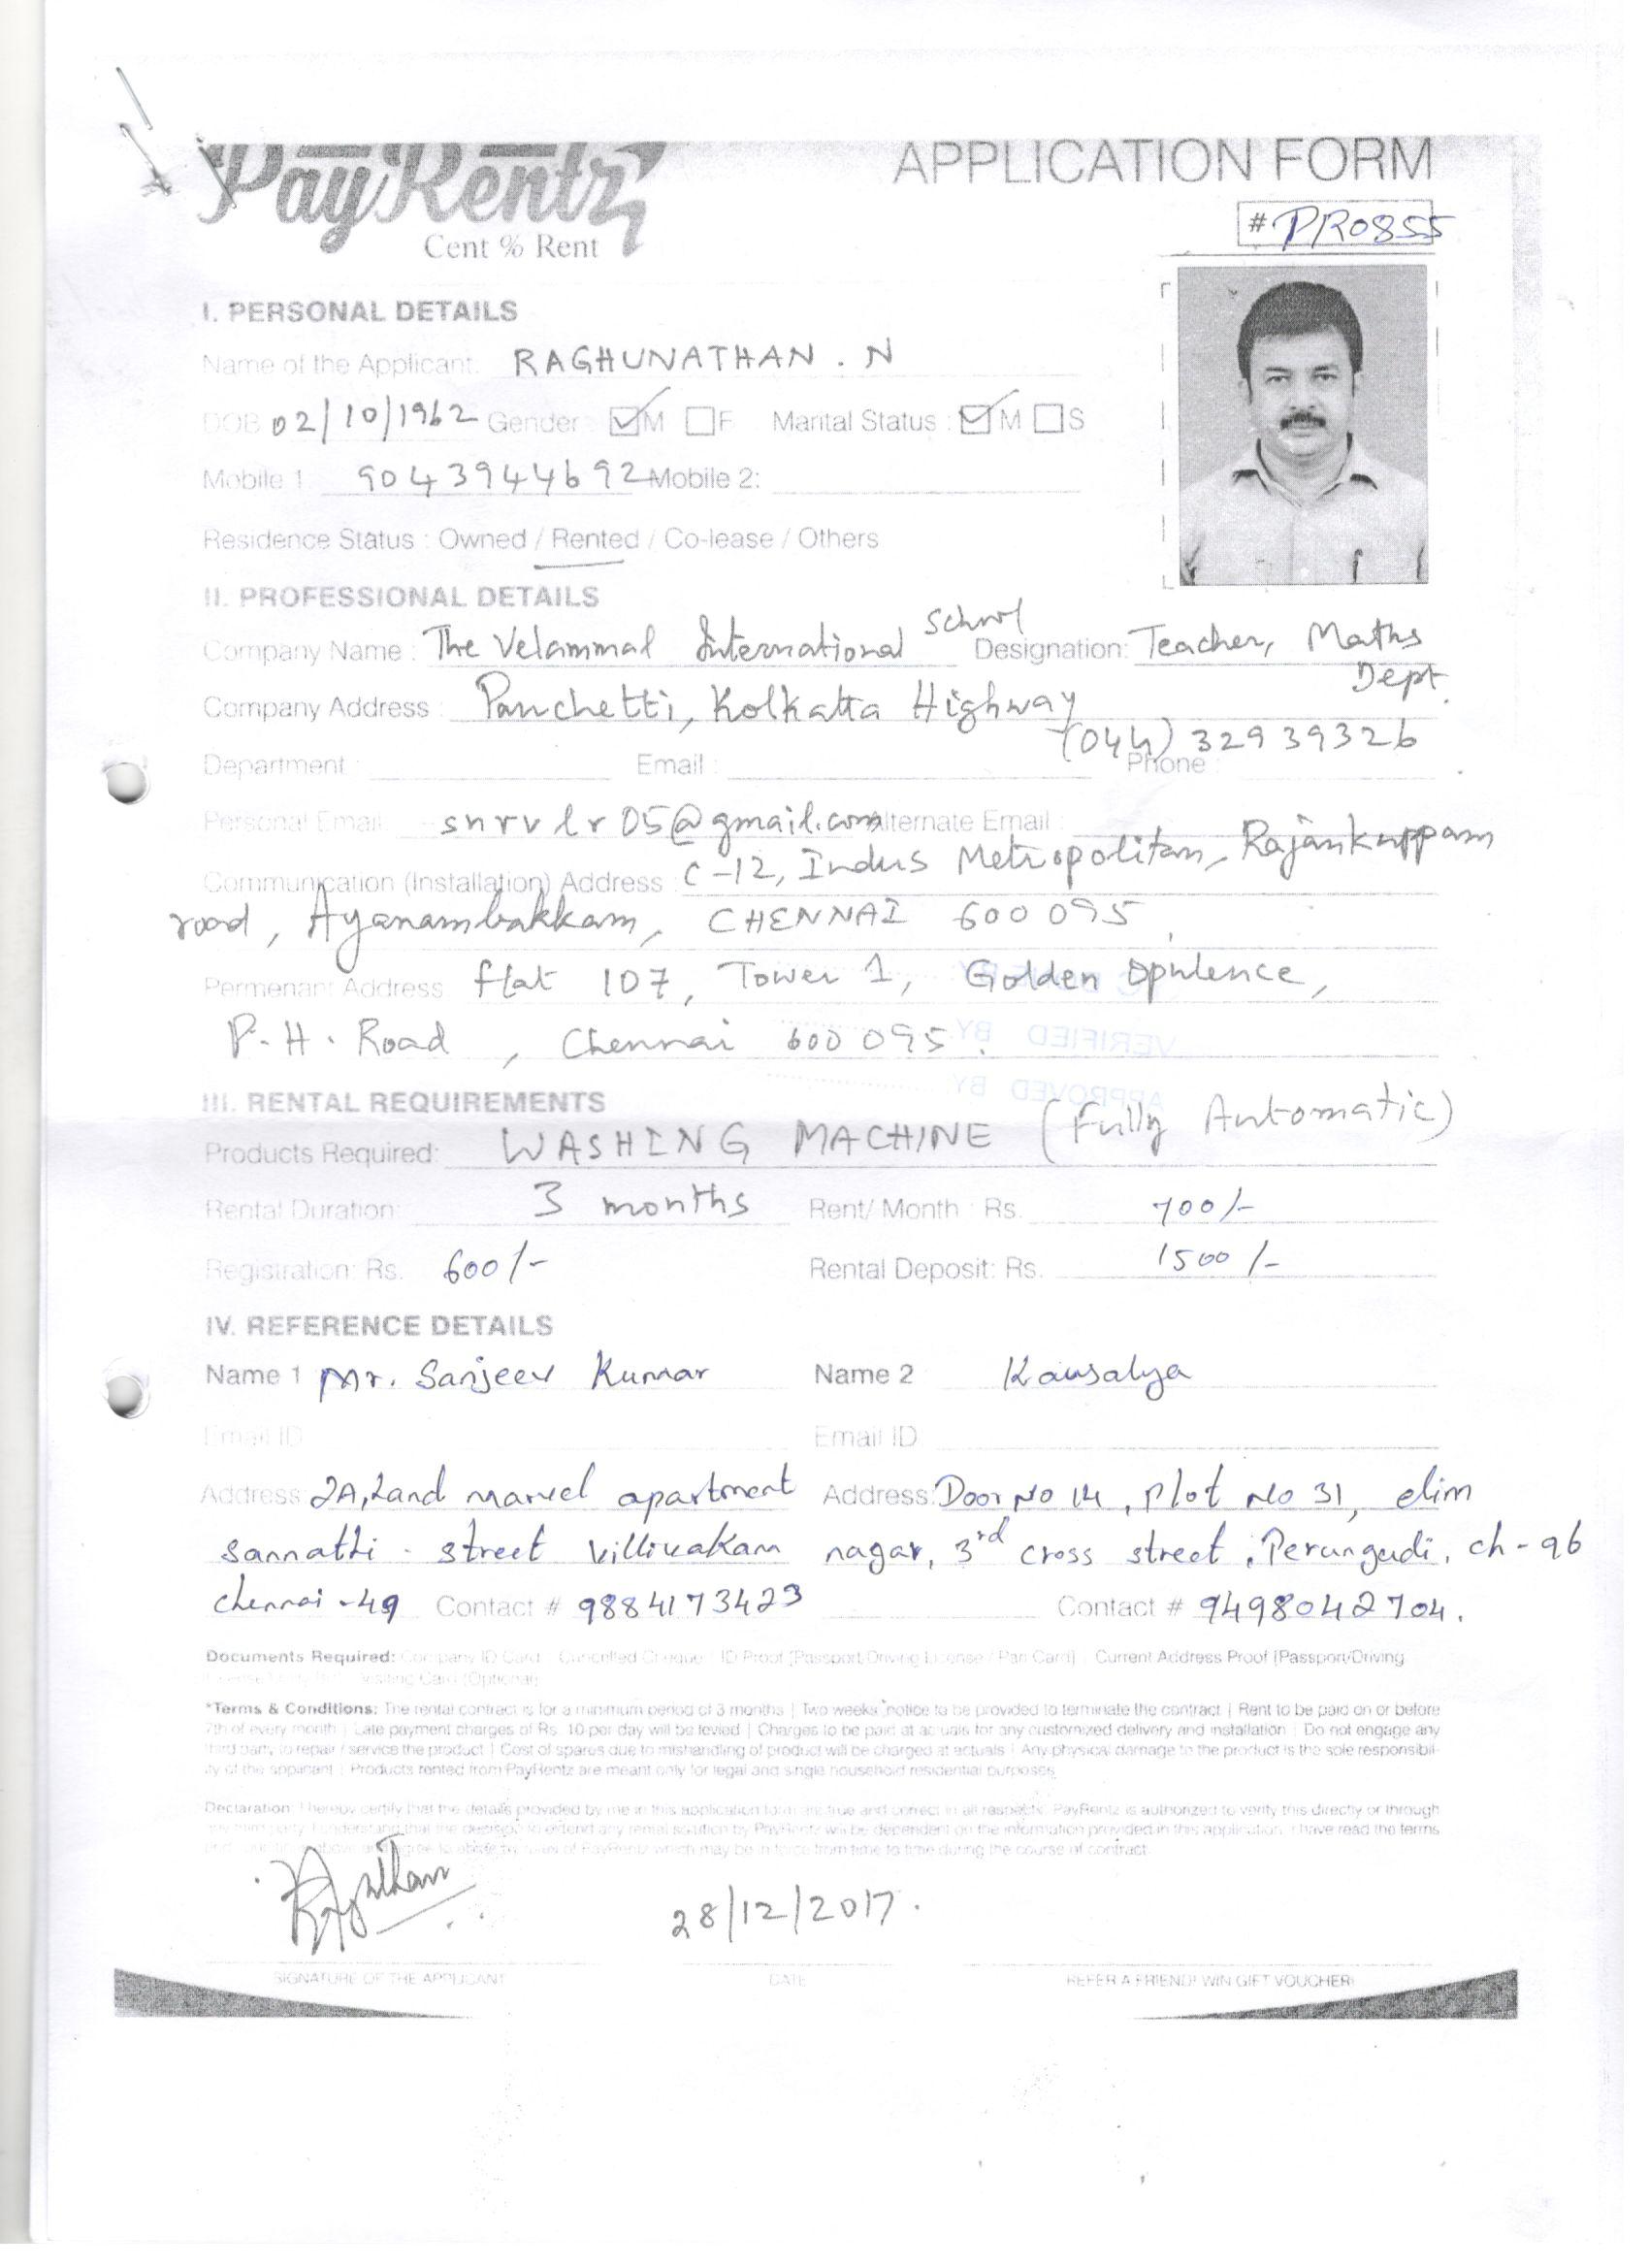 PayRentz
Cent % Rent
APPLICATION FORM
# PR0855
I. PERSONAL DETAILS
Name of the Applicant: RAGHUNATHAN . N
DOB 02/10/1962 Gender : M F Marital Status : M S
Mobile 1 9043944692 Mobile 2:
Residence Status : Owned / Rented / Co-lease / Others
II. PROFESSIONAL DETAILS
Company Name : The Velammal International School Designation: Teacher, Maths Dept.
Company Address : Panchetti, Kolkatta Highway
Department : Email : Phone : (044) 32939326
Personal Email: snrvlr05@gmail.com Alternate Email :
Communication (Installation) Address : C-12, Indus Metropolitan, Rajankuppam
road, Ayanambakkam, CHENNAI 600095
Permenant Address flat 107, Tower 1, Golden Opulence,
P.H. Road, Chennai 600095.
VERIFIED BY
APPROVED BY
III. RENTAL REQUIREMENTS
Products Required: WASHING MACHINE (Fully Automatic)
Rental Duration: 3 months Rent/ Month : Rs. 700/-
Registration: Rs. 600/- Rental Deposit: Rs. 1500/-
IV. REFERENCE DETAILS
Name 1 Mr. Sanjeev Kumar Name 2 Kausalya
Email ID Email ID
Address: 2A, Land marvel apartment Address: Door No 14, Plot No 31, elim
Sannathi street Villivakam nagar, 3rd cross street, Perungudi, ch-96
Chennai-49 Contact # 9884173423 Contact # 9498042704.
Documents Required: Company ID Card Cancelled Cheque ID Proof [Passport/Driving License / Pan Card] Current Address Proof [Passport/Driving
Visiting Card (Optional)
*Terms & Conditions: The rental contract is for a minimum period of 3 months | Two weeks notice to be provided to terminate the contract | Rent to be paid on or before
7th of every month | Late payment charges of Rs. 10 per day will be levied | Charges to be paid at actuals for any customized delivery and installation | Do not engage any
third party to repair / service the product | Cost of spares due to mishandling of product will be charged at actuals | Any physical damage to the product is the sole responsibil-
ity of the applicant | Products rented from PayRentz are meant only for legal and single household residential purposes
Declaration: I hereby certify that the details provided by me in this application form are true and correct in all respects. PayRentz is authorized to verify this directly or through
any third party. I understand that the decision to extend any rental solution by PayRentz will be dependent on the information provided in this application. I have read the terms
and above and agree to abide by of PayRentz which may be in force from time to time during the course of contract
28/12/2017.
SIGNATURE OF THE APPLICANT DATE REFER A FRIEND! WIN GIFT VOUCHER!